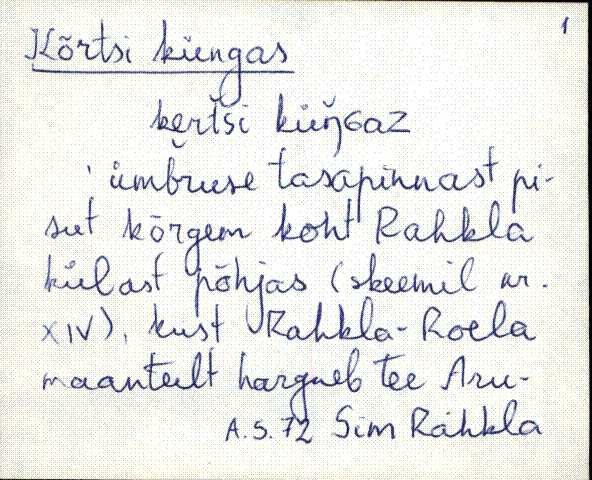 1
Kõrtsi küngas
kɐ̭ŕtśi küŋ̆ɢaz
' ümbruse tasapinnast pi-
sut kõrgem koht Rahkla
külast põhjas (skeemil nr.
XIV), kust Rahkla-Roela
maanteelt hargneb tee Aru-
A.S. 72 Sim Rahkla